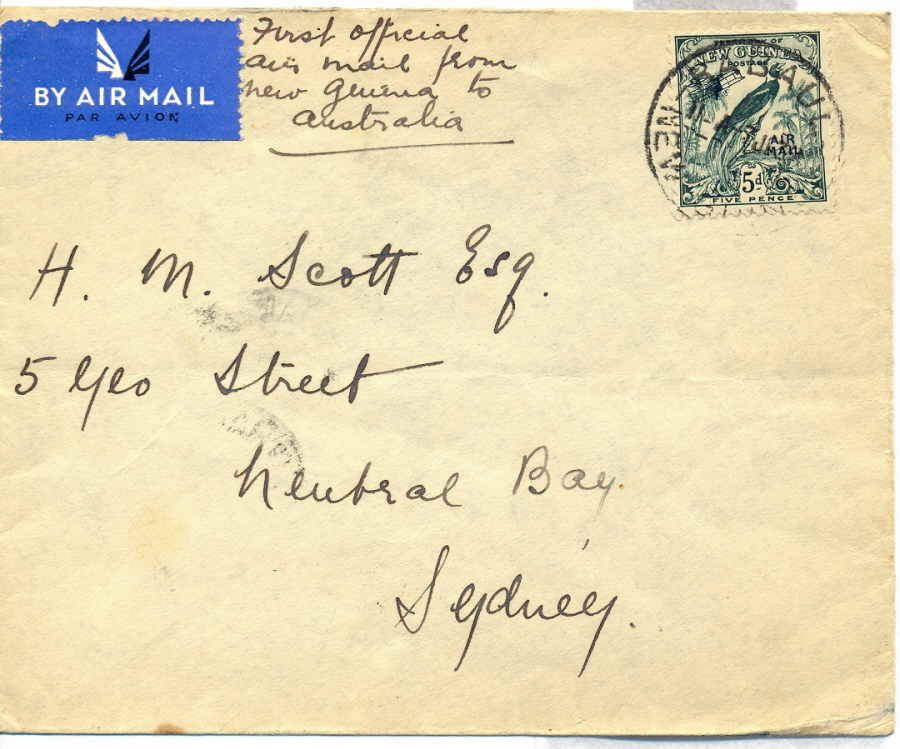 BY AIR MAIL
PAR AVION
First official
air mail from
new Guinea to
Australia
TERRITORY OF
NEW GUINEA
POSTAGE
AIR
MAIL
5d
FIVE PENCE
RABAUL
NEW
H. M. Scott Esq.
5 Geo Street
Neutral Bay
Sydney.